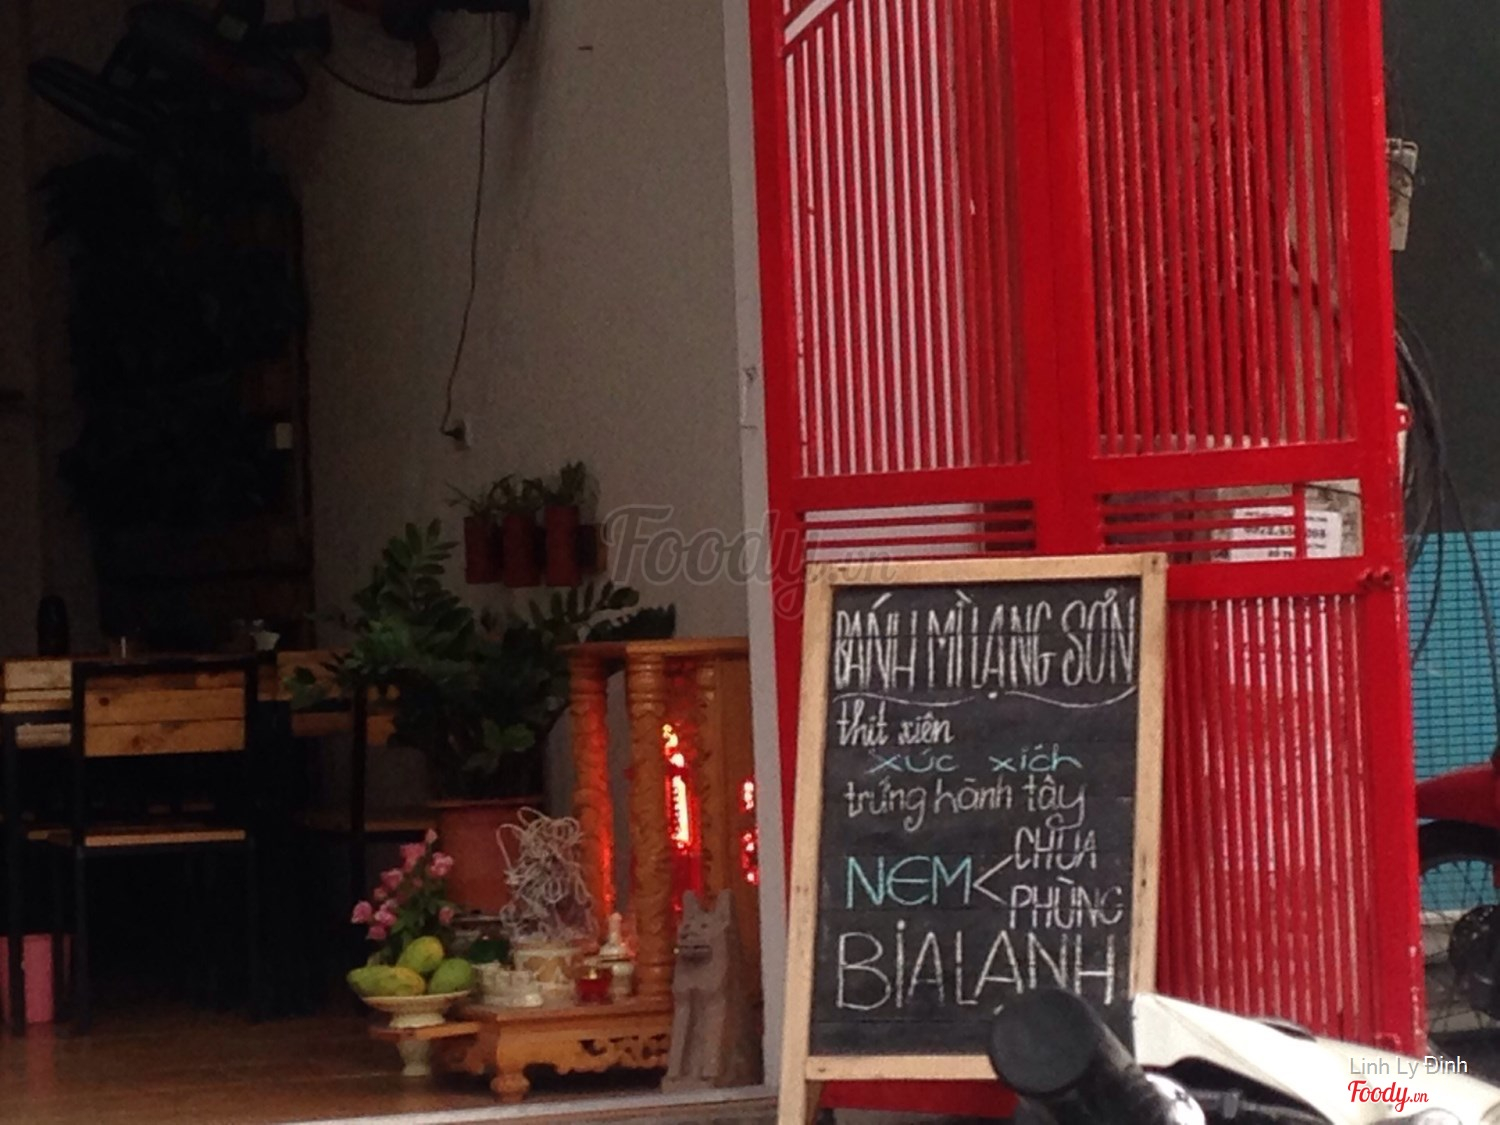 BÁNH MÌ LẠNG SƠN
thịt xiên
xúc xích
trứng hành tây
NEM < CHUA
PHÙNG
BIA LẠNH
Foody.vn
Linh Ly Đinh
Foody.vn